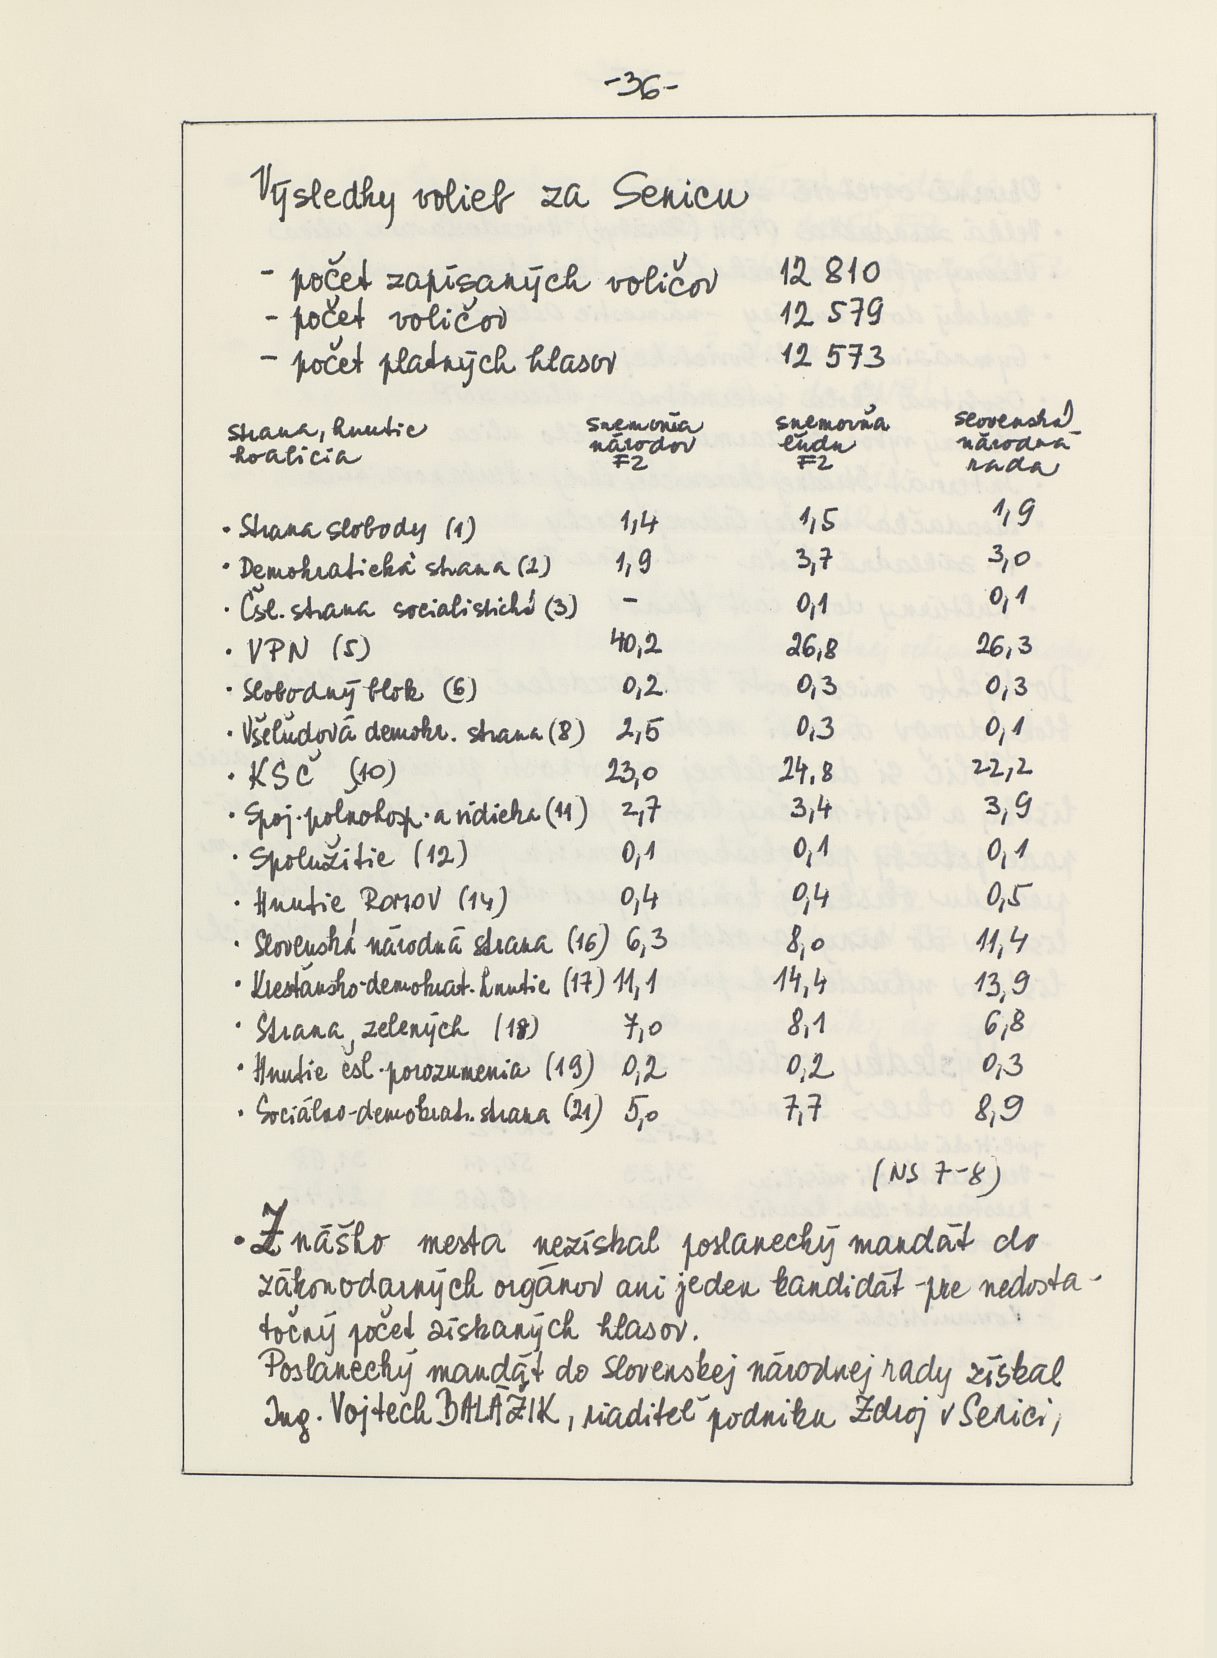 -36-
Výsledky volieb za Senicu
- počet zapísaných voličov 12 810
- počet voličov 12 579
- počet platných hlasov 12 573
strana, hnutie snemovňa snemovňa slovenská
koalícia národov ľudu národná
FZ FZ rada
• Strana slobody (1) 1,4 1,5 1,9
• Demokratická strana (2) 1,9 3,7 3,0
• Čsl. strana socialistická (3) - 0,1 0,1
• VPN (5) 40,2 26,8 26,3
• Slobodný blok (6) 0,2 0,3 0,3
• Všeľudová demokr. strana (8) 2,5 0,3 0,1
• KSČ (10) 23,0 24,8 22,2
• Spoj. poľnohosp. a vidieka (11) 2,7 3,4 3,9
• Spolužitie (12) 0,1 0,1 0,1
• Hnutie Romov (14) 0,4 0,4 0,5
• Slovenská národná strana (16) 6,3 8,0 11,4
• Kresťansko-demokrat. hnutie (17) 11,1 14,4 13,9
• Strana zelených (18) 7,0 8,1 6,8
• Hnutie čsl. porozumenia (19) 0,2 0,2 0,3
• Sociálno-demokrat. strana (21) 5,0 7,7 8,9
(NS 7-8)
• Z nášho mesta nezískal poslanecký mandát do
zákonodarných orgánov ani jeden kandidát - pre nedosta-
točný počet získaných hlasov.
Poslanecký mandát do Slovenskej národnej rady získal
Ing. Vojtech BALÁŽIK, riaditeľ podniku Zdroj v Senici,